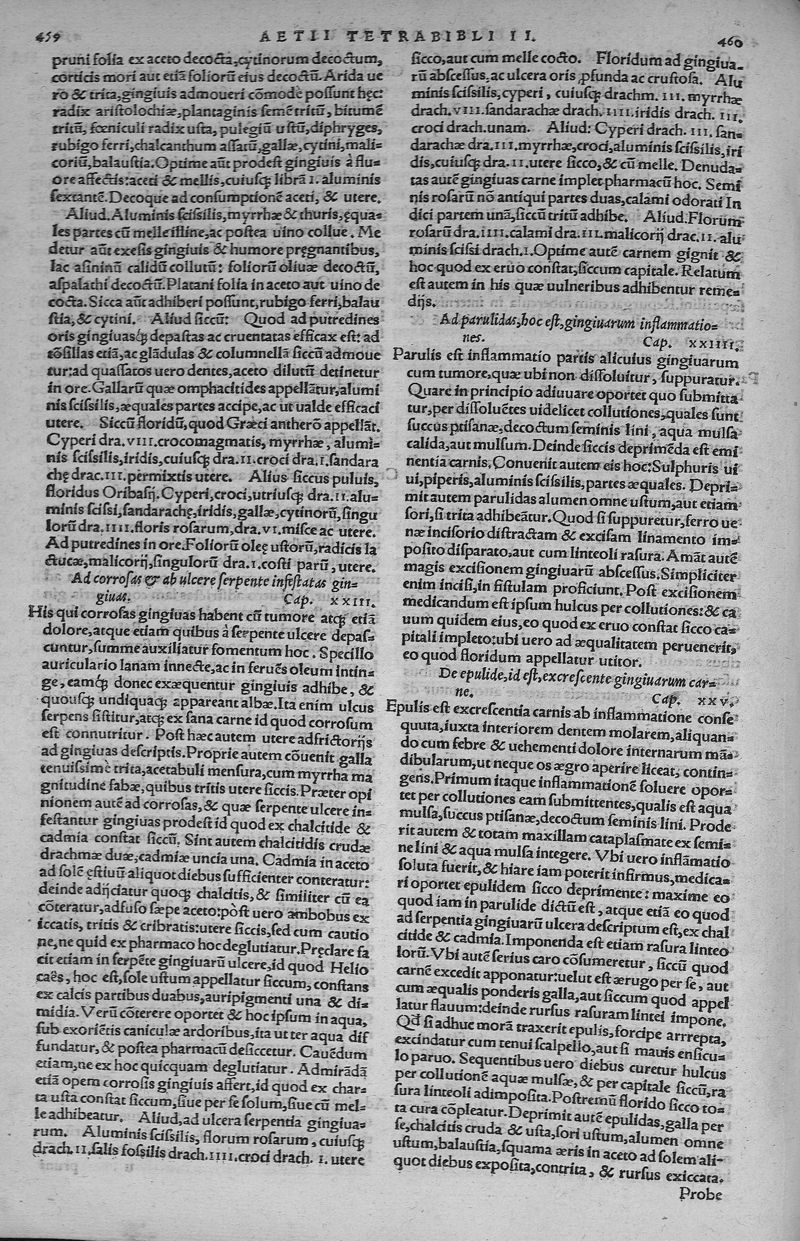 459
AETII TETRABIBLI II.
460
pruni folia ex aceto decocta, cytinorum decoctum,
corticis mori aut etiã foliorũ eius decoctũ. Arida ue
ro & trita, gingiuis admoueri cõmode possunt hęc:
radix aristolochiæ, plantaginis semẽ tritũ, bitumẽ
tritũ, fœniculi radix usta, pulegiũ ustũ, diphryges,
rubigo ferri, chalcanthum assatũ, gallæ, cytini, mali-
coriũ, balaustia. Optime aũt prodest gingiuis à flu-
ore affectis: aceti & mellis, cuiusq; librã I. aluminis
sextantẽ. Decoque ad consumptionẽ aceti, & utere.
Aliud. Aluminis scissilis, myrrhæ & thuris, ęqua-
les partes cũ melle illine, ac postea uino collue. Me
detur aũt exesis gingiuis & humore pręgnantibus,
lac asininũ calidũ collutũ: foliorũ oliuæ decoctũ,
aspalathi decoctũ. Platani folia in aceto aut uino de
cocta. Sicca aũt adhiberi possunt, rubigo ferri, balau
stia, & cytini. Aliud siccũ: Quod ad putredines
oris gingiuasq; depastas ac cruentatas efficax est: ad
tõsillas etiã, ac glãdulas & columnellã siccũ admoue
tur: ad quassatos uero dentes, aceto dilutũ detinetur
in ore. Gallarũ quæ omphacitides appellãtur, alumi
nis scissilis, æquales partes accipe, ac ut ualde efficaci
utere. Siccũ floridũ, quod Græci antherò appellãt.
Cyperi dra. VIII. crocomagmatis, myrrhæ, alumi-
nis scissilis, iridis, cuiusq; dra. II. croci dra. I. sandara
chę drac. III. permixtis utere. Alius siccus puluis,
floridus Oribasij. Cyperi, croci, utriusq; dra. II. alu-
minis scissi, sandarachę, iridis, gallæ, cytinorũ, singu
lorũ dra. IIII. floris rosarum, dra. VI. misce ac utere.
Ad putredines in ore. Foliorũ oleę ustorũ, radicis la
ctucæ, malicorij, singulorũ dra. I. costi parũ, utere.
Ad corrosas & ab ulcere serpente infestatas gin-
giuas. Cap. XXIII.
His qui corrosas gingiuas habent cũ tumore atq; etiã
dolore, atque etiam quibus à serpente ulcere depas-
cuntur, summe auxiliatur fomentum hoc. Specillo
auriculario lanam innecte, ac in feruẽs oleum intin-
ge, eamq; donec exæquentur gingiuis adhibe, &
quousq; undiquaq; appareant albæ. Ita enim ulcus
serpens sistitur, atq; ex sana carne id quod corrosum
est connutritur. Post hæc autem utere adfrictorijs
ad gingiuas descriptis. Proprie autem cõuenit galla
tenuissimè trita, acetabuli mensura, cum myrrha ma
gnitudine fabæ, quibus tritis utere siccis. Præter opi
nionem autẽ ad corrosas, & quæ serpente ulcere in-
festantur gingiuas prodest id quod ex chalcitide &
cadmia constat siccũ. Sint autem chalcitidis crudæ
drachmæ duæ, cadmiæ uncia una. Cadmia in aceto
ad solẽ ęstiuũ aliquot diebus sufficienter conteratur:
deinde adijciatur quoq; chalcitis, & similiter cũ ea
cõteratur, adfuso sæpe aceto: post uero ambobus ex
iccatis, tritis & cribratis: utere siccis, sed cum cautio
ne, ne quid ex pharmaco hoc deglutiatur. Pręclare fa
cit etiam in serpẽte gingiuarũ ulcere, id quod Helio
caẽs, hoc est, sole ustum appellatur siccum, constans
ex calcis partibus duabus, auripigmenti una & di-
midia. Verũ cõterere oportet & hoc ipsum in aqua,
sub exoriẽtis caniculæ ardoribus, ita ut ter aqua dif
fundatur, & postea pharmacũ desiccetur. Cauẽdum
etiam, ne ex hoc quicquam deglutiatur. Admirãdã
etiã opem corrosis gingiuis affert, id quod ex char-
ta usta constat siccum, siue per se solum, siue cũ mel-
le adhibeatur. Aliud, ad ulcera serpentia gingiua-
rum. Aluminis scissilis, florum rosarum, cuiusq;
drach. II. salis fossilis drach. IIII. croci drach. I. utere
sicco, aut cum melle cocto. Floridum ad gingiua-
rũ abscessus, ac ulcera oris ꝓfunda ac crustosa. Alu
minis scissilis, cyperi, cuiusq; drachm. III. myrrhæ
drach. VIII. sandarachæ drach. IIII. iridis drach. III.
croci drach. unam. Aliud: Cyperi drach. III. san-
darachæ dra. III. myrrhæ, croci, aluminis scissilis, iri
dis, cuiusq; dra. II. utere sicco, & cũ melle. Denuda-
tas autẽ gingiuas carne implet pharmacũ hoc. Semi
nis rosarũ nõ antiqui partes duas, calami odorati In
dici partem unã, siccũ tritũ adhibe. Aliud. Florum
rosarũ dra. IIII. calami dra. III. malicorij drac. II. alu
minis scissi drach. I. Optime autẽ carnem gignit &
hoc quod ex eruo constat, siccum capitale. Relatum
est autem in his quæ uulneribus adhibentur reme-
dijs.
Ad parulidas, hoc est, gingiuarum inflammatio-
nes. Cap. XXIIII.
Parulis est inflammatio partis alicuius gingiuarum
cum tumore, quæ ubi non dissoluitur, suppuratur.
Quare in principio adiuuare oportet quo submitta-
tur, per dissoluẽtes uidelicet collutiones, quales sunt
succus ptisanæ, decoctum seminis lini, aqua mulsa
calida, aut mulsum. Deinde siccis deprimẽda est emi
nentia carnis. Conuenit autem eis hoc: Sulphuris ui
ui, piperis, aluminis scissilis, partes æquales. Depri-
mit autem parulidas alumen omne ustum, aut etiam
sori, si trita adhibeãtur. Quod si suppuretur, ferro ue-
næ incisorio distractam & excisam linamento im-
posito disparato, aut cum linteoli rasura. Amãt autẽ
magis excisionem gingiuarũ abscessus. Simpliciter
enim incisi, in fistulam proficiunt. Post excisionem
medicandum est ipsum hulcus per collutiones: & ca
uum quidem eius, eo quod ex eruo constat sicco ca-
pitali impleto: ubi uero ad æqualitatem peruenerit,
eo quod floridum appellatur utitor.
De epulide, id est, excrescente gingiuarum car-
ne. Cap. XXV.
Epulis est excrescentia carnis ab inflammatione conse
quuta, iuxta interiorem dentem molarem, aliquan-
do cum febre & uehementi dolore internarum mã-
dibularum, ut neque os ægro aperire liceat, contin-
gens. Primum itaque inflammationẽ soluere opor-
tet per collutiones eam submittentes, qualis est aqua
mulsa, succus ptisanæ, decoctum seminis lini. Prode
rit autem & totam maxillam cataplasmate ex semi-
ne lini & aqua mulsa integere. Vbi uero inflãmatio
soluta fuerit, & hiare iam poterit infirmus, medica-
ri oportet epulidem sicco deprimente: maxime eo
quod iam in parulide dictũ est, atque etiã eo quod
ad serpentia gingiuarũ ulcera descriptum est, ex chal
citide & cadmia. Imponenda est etiam rasura linteo
lorũ. Vbi autẽ serius caro cõsumeretur, siccũ quod
carnẽ excedit apponatur: uelut est ærugo per se, aut
cum æqualis ponderis galla, aut siccum quod appel
latur flauum: deinde rursus rasuram lintei impone.
Qd si adhuc morã traxerit epulis, forcipe arrepta,
excindatur cum tenui scalpello, aut si mauis ensicu-
lo paruo. Sequentibus uero diebus curetur hulcus
per collutionẽ aquæ mulsæ, & per capitale siccũ, ra
sura linteoli adimposita. Postremũ florido sicco to-
ta cura cõpleatur. Deprimit autẽ epulidas, galla per
se, chalcitis cruda & usta, sori ustum, alumen omne
ustum, balaustia, squama æris in aceto ad solem ali-
quot diebus exposita, contrita, & rursus exiccata.
Probe